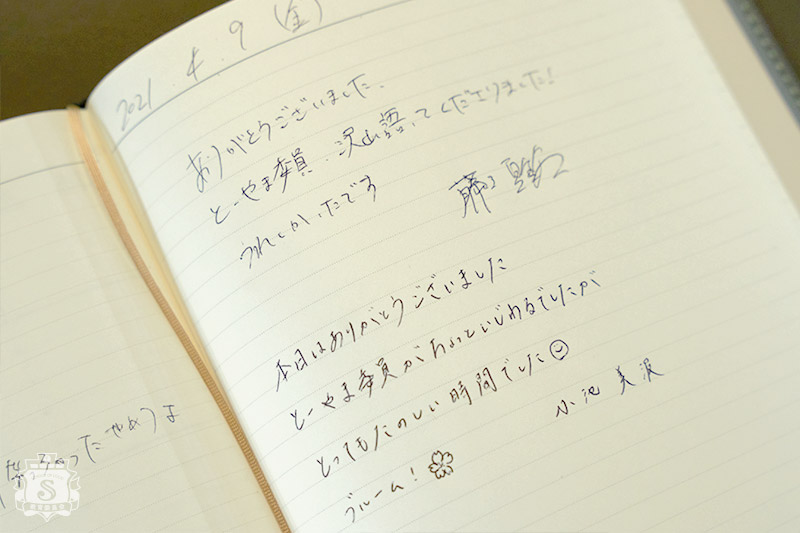 2021.4.9(金)
ありがとうございました.
とーやま委員、沢山語ってくださりました!
うれしかったです
本日はありがとうございました
とーやま委員がちょっといじわるでしたが
とってもたのしい時間でした
小池 美波
ブルーム!
ったやめうよ
S